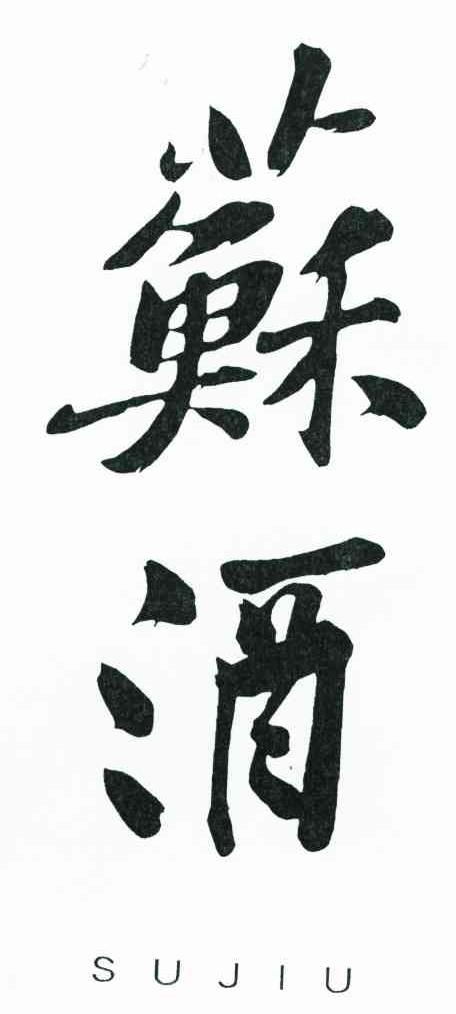 蘇
酒
SUJIU